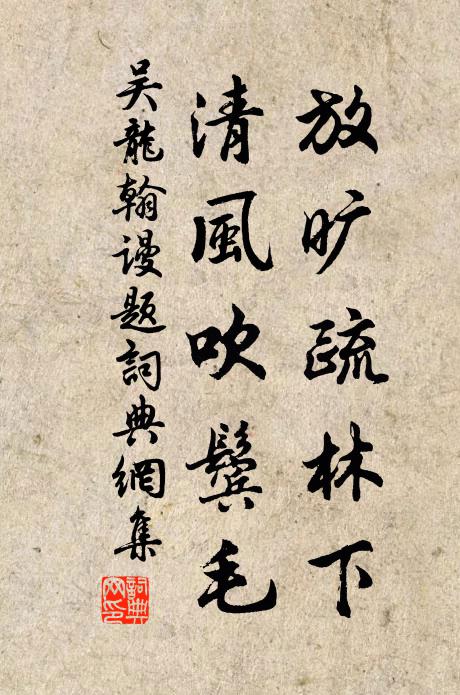 放旷疏林下
清風吹鬓毛
吴龍翰谩题詞典網集
詞典網印